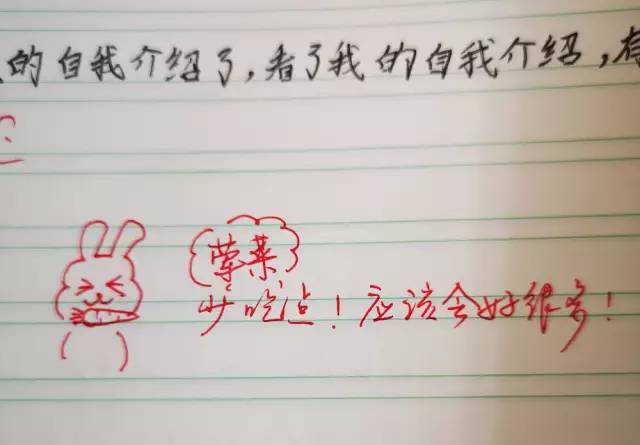 的自我介绍了,看了我的自我介绍,
荤菜
少吃点!应该会好很多!